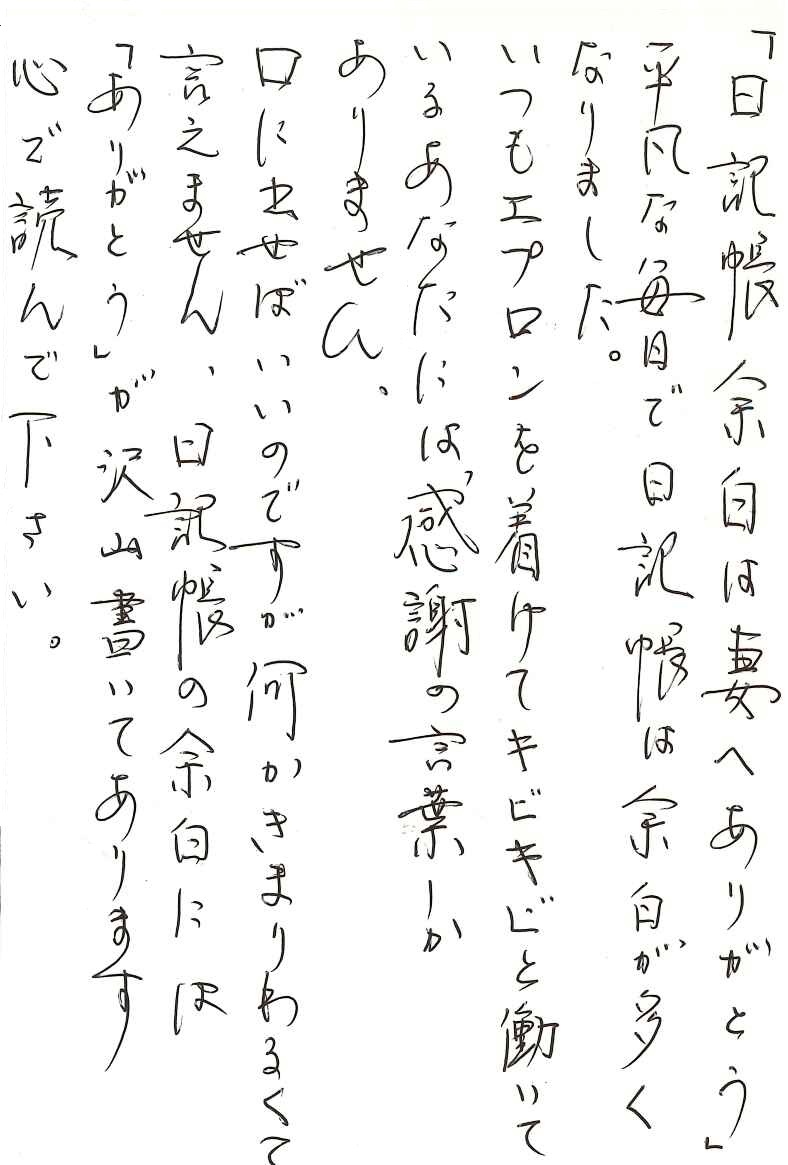 「日記帳余白は妻へありがとう」
平凡な毎日で日記帳は余白が多く
なりました。
いつもエプロンを着けてキビキビと働いて
いるあなたには、感謝の言葉しか
ありません、
口に出せばいいのですが何かきまりわるくて
言えません、日記帳の余白には
「ありがとう」が沢山書いてあります
心で読んで下さい。